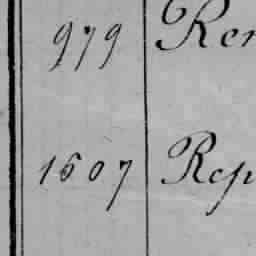 979 Ren
1607 Rep